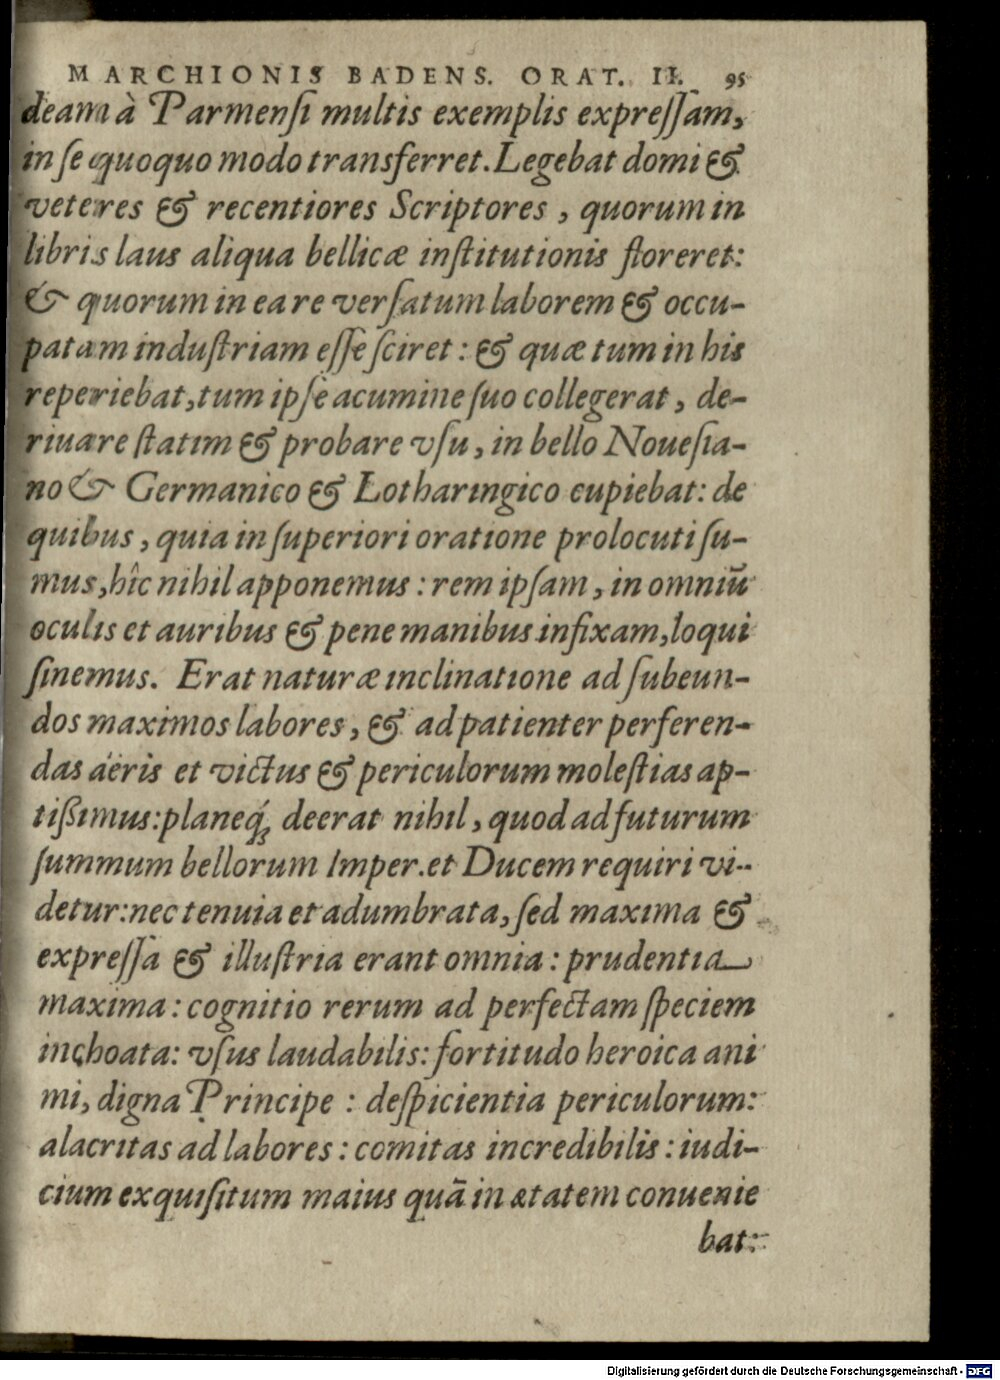 MARCHIONIS BADENS. ORAT. II. 95
deam à Parmensi multis exemplis expreſſam,
in ſe quoquo modo transferret. Legebat domi &
veteres & recentiores Scriptores, quorum in
libris laus aliqua bellicæ inſtitutionis floreret:
& quorum in ea re verſatum laborem & occu-
patam induſtriam eſſe ſciret: & quæ tum in his
reperiebat, tum ipſe acumine ſuo collegerat, de-
riuare ſtatim & probare vſu, in bello Noueſia-
no & Germanico & Lotharingico cupiebat: de
quibus, quia in ſuperiori oratione prolocuti ſu-
mus, hîc nihil apponemus: rem ipſam, in omniū
oculis et auribus & pene manibus infixam, loqui
ſinemus. Erat naturæ inclinatione ad ſubeun-
dos maximos labores, & ad patienter perferen-
das aëris et victus & periculorum moleſtias ap-
tißimus: planeq́; deerat nihil, quod ad futurum
ſummum bellorum Imper. et Ducem requiri vi-
detur: nec tenuia et adumbrata, ſed maxima &
expreſſa & illuſtria erant omnia: prudentia
maxima: cognitio rerum ad perfectam ſpeciem
inchoata: vſus laudabilis: fortitudo heroica ani
mi, digna Principe: deſpicientia periculorum:
alacritas ad labores: comitas incredibilis: iudi-
cium exquiſitum maius quā in ætatem conuenie
bat:
Digitalisierung gefördert durch die Deutsche Forschungsgemeinschaft - DFG